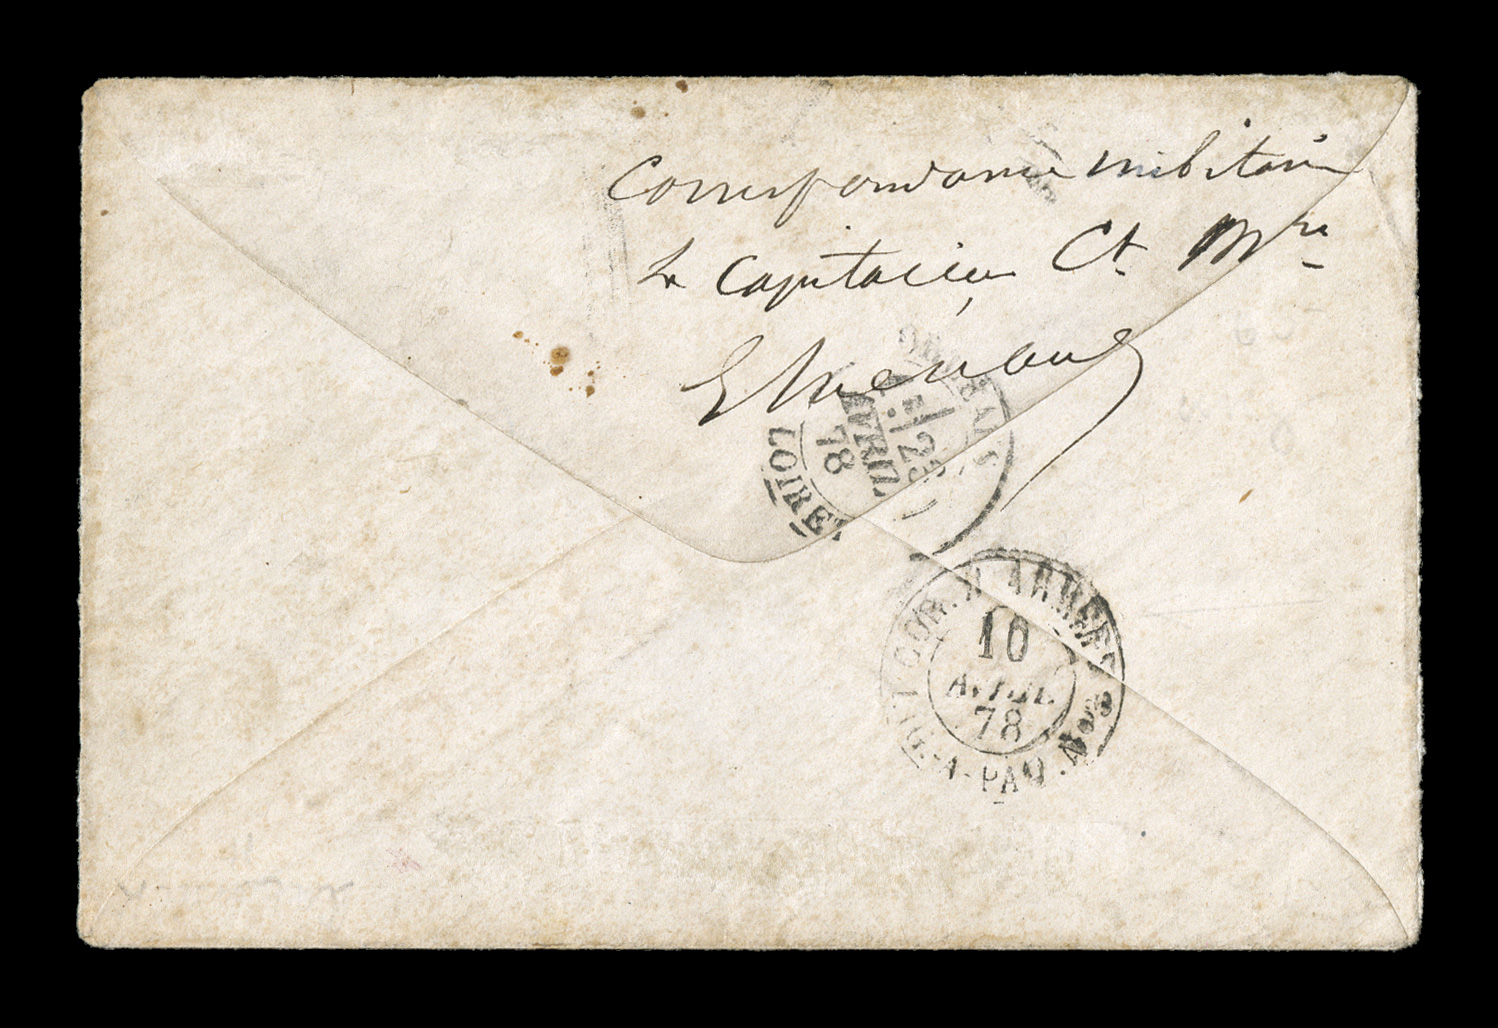 Correspondance militaire
Le Capitaine Ct. 
ORLEANS
23
AVRIL
78
LOIRET
COR. D ARMEES
10
AVRIL
78
LIG. A. PAQ.